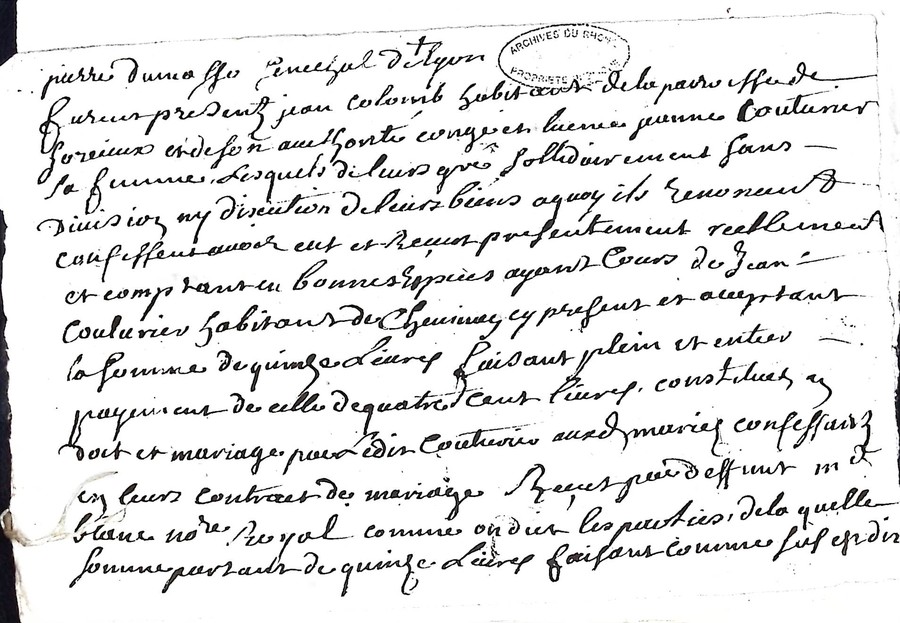 pierre dumas senechal de lyon
ARCHIVES DU RHONE
PROPRIETE
furent presentz jean colomb habitant de la parroisse de
et de son authorité congé et licence jeanne Couturier
sa femme. Lesquels de leurs gré sollidairement sans
Division ny discution de leurs biens a quoy ils renoncent
confessent avoir eut et Receut presentement reellement
et comptant en bonnes espèces ayant Cours de Jean
Couturier habitant de cy present et acceptant
la somme de quinze Livres faisant plein et entier
payement de celle de quatre Cent livres. constituez en
doit et mariage par Ledit Couturier auxd mariez confessantz
en leurs contract de mariage Receut par deffunt me
blanc nore Royal comme ont dit les parties, de la quelle
somme partant de quinze Livres faisant comme sus est dit